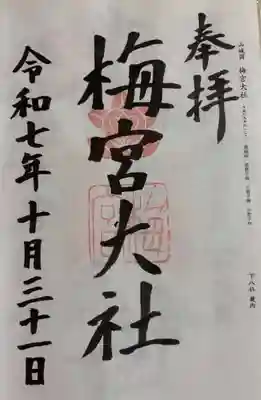 奉拝
山城国 梅宮大社
梅宮大社
令和七年十月三十一日